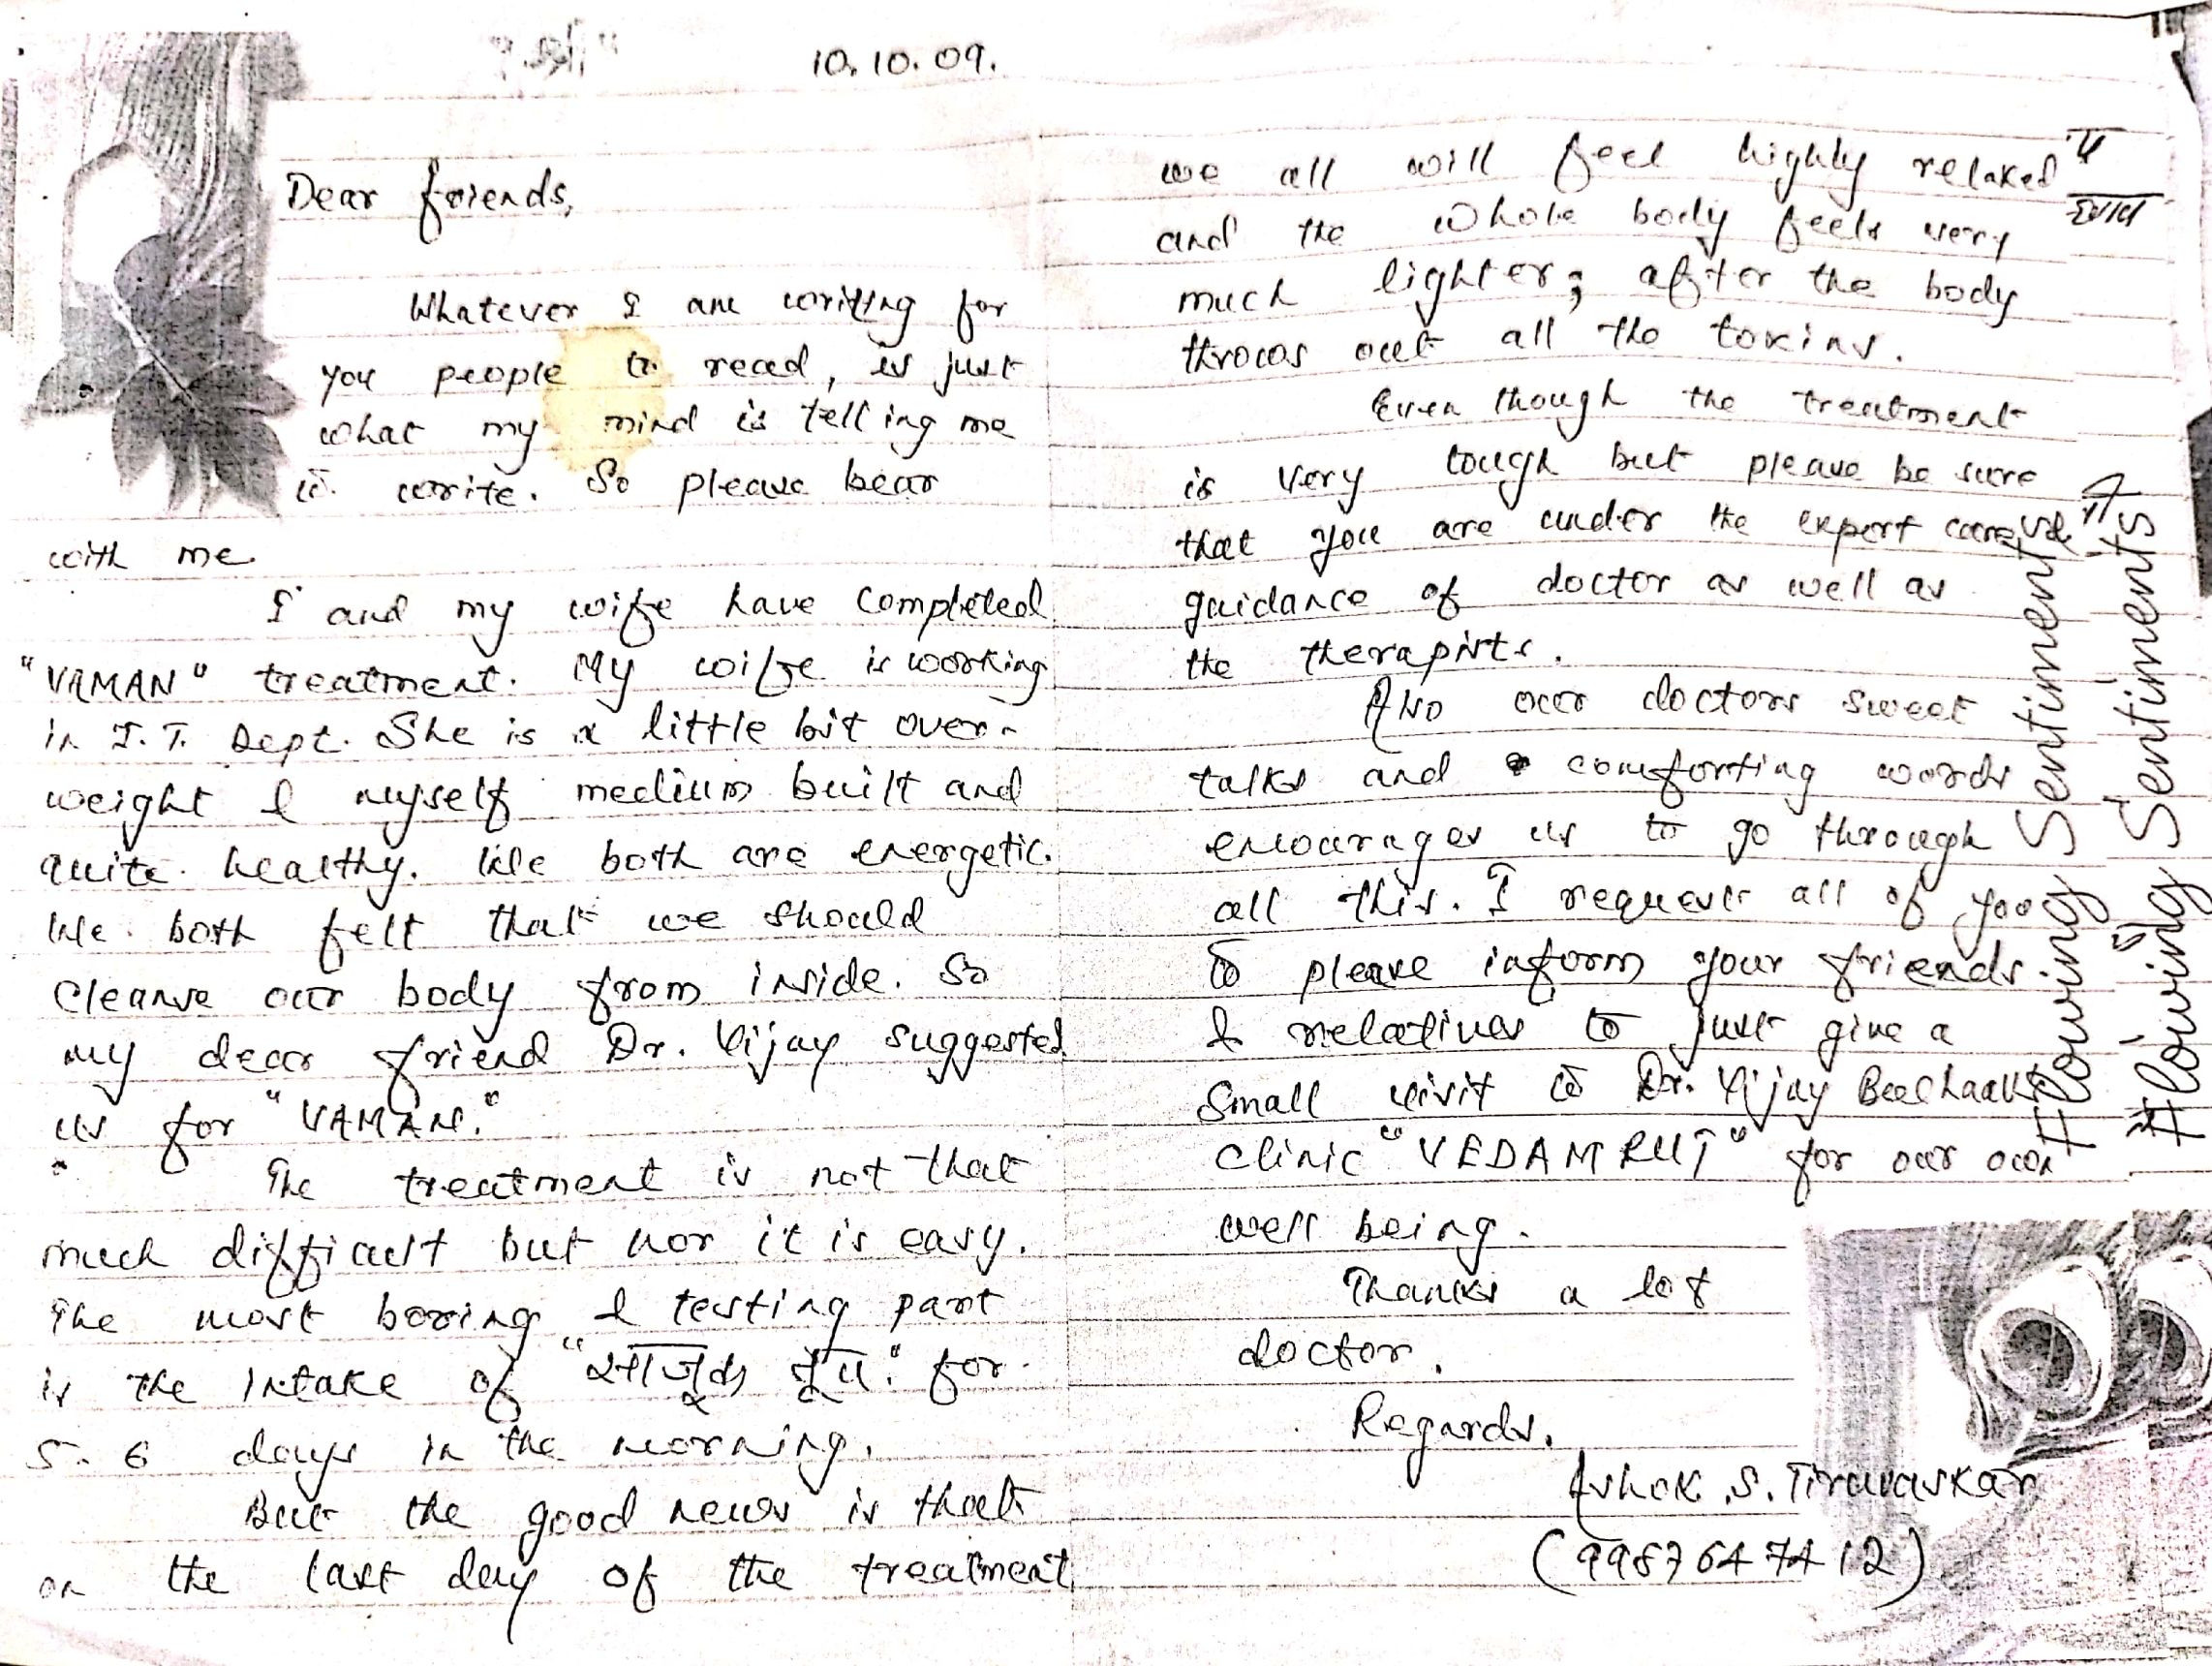 10.10.09.
Dear friends,
Whatever I am writing for
you people to read, is just
what my mind is telling me
to write. So please bear
with me.
I and my wife have completed
"VAMAN" treatment. My wife is working
in I.T. Dept. She is a little bit over-
weight & myself medium built and
quite healthy. We both are energetic.
We both felt that we should
cleanse our body from inside. So
my dear friend Dr. Vijay suggested
us for "VAMAN."
The treatment is not that
much difficult but nor it is easy.
The most boring & testing part
is the intake of "साजूक तूप." for
5-6 days in the morning.
But the good news is that
on the last day of the treatment
we all will feel highly relaxed
and the whole body feels very
much lighter; after the body
throws out all the toxins.
Even though the treatment
is very tough but please be sure
that you are under the expert care &
guidance of doctor as well as
the therapists.
Also our doctors sweet
talks and comforting words
encourages us to go through
all this. I request all of you
to please inform your friends
& relatives to just give a
small visit to Dr. Vijay
clinic "VEDAMRUT" for our own
well being.
Thanks a lot
doctor.
Regards.
Ashok .S. Tiravaskar
(9987647412)
Flowing Sentiments
Flowing Sentiments